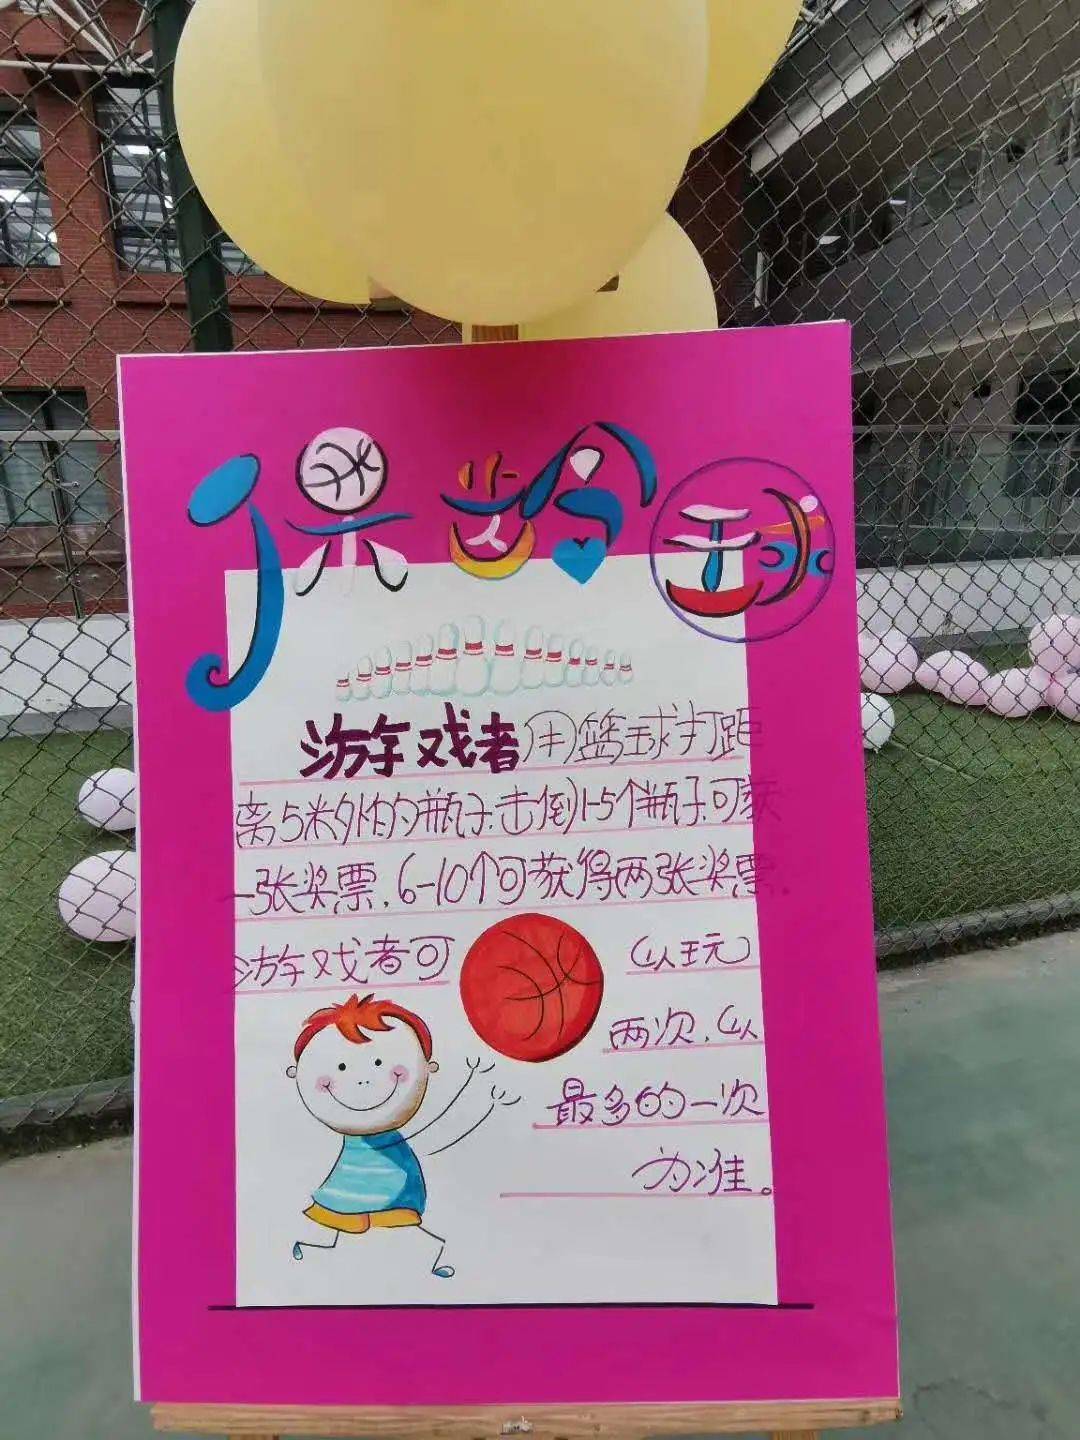 保龄球
游戏者用篮球打距
离5米外的瓶子.击倒1-5个瓶子可获
一张奖票.6-10个可获得两张奖票.
游戏者可以玩
两次.以
最多的一次
为准。